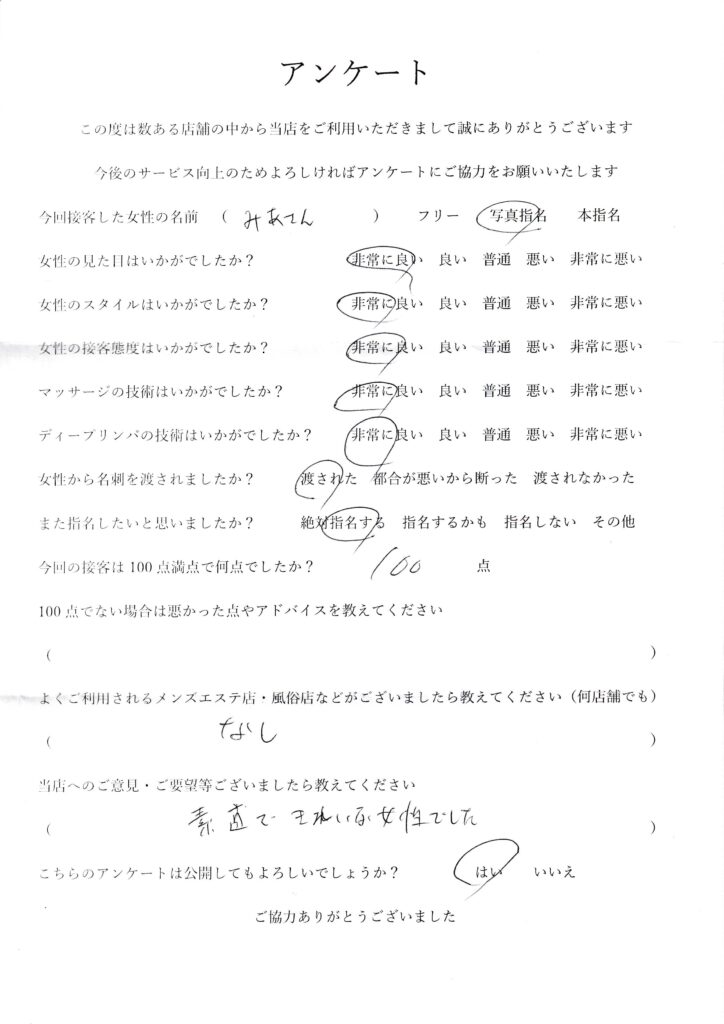 アンケート
この度は数ある店舗の中から当店をご利用いただきまして誠にありがとうございます
今後のサービス向上のためよろしければアンケートにご協力をお願いいたします
今回接客した女性の名前 （ みあさん ） フリー 写真指名 本指名
女性の見た目はいかがでしたか？ 非常に良い 良い 普通 悪い 非常に悪い
女性のスタイルはいかがでしたか？ 非常に良い 良い 普通 悪い 非常に悪い
女性の接客態度はいかがでしたか？ 非常に良い 良い 普通 悪い 非常に悪い
マッサージの技術はいかがでしたか？ 非常に良い 良い 普通 悪い 非常に悪い
ディープリンパの技術はいかがでしたか？ 非常に良い 良い 普通 悪い 非常に悪い
女性から名刺を渡されましたか？ 渡された 都合が悪いから断った 渡されなかった
また指名したいと思いましたか？ 絶対指名する 指名するかも 指名しない その他
今回の接客は100点満点で何点でしたか？ 100 点
100点でない場合は悪かった点やアドバイスを教えてください
（ ）
よくご利用されるメンズエステ店・風俗店などがございましたら教えてください（何店舗でも）
（ なし ）
当店へのご意見・ご要望等ございましたら教えてください
（ 素直できれいな女性でした ）
こちらのアンケートは公開してもよろしいでしょうか？ はい いいえ
ご協力ありがとうございました